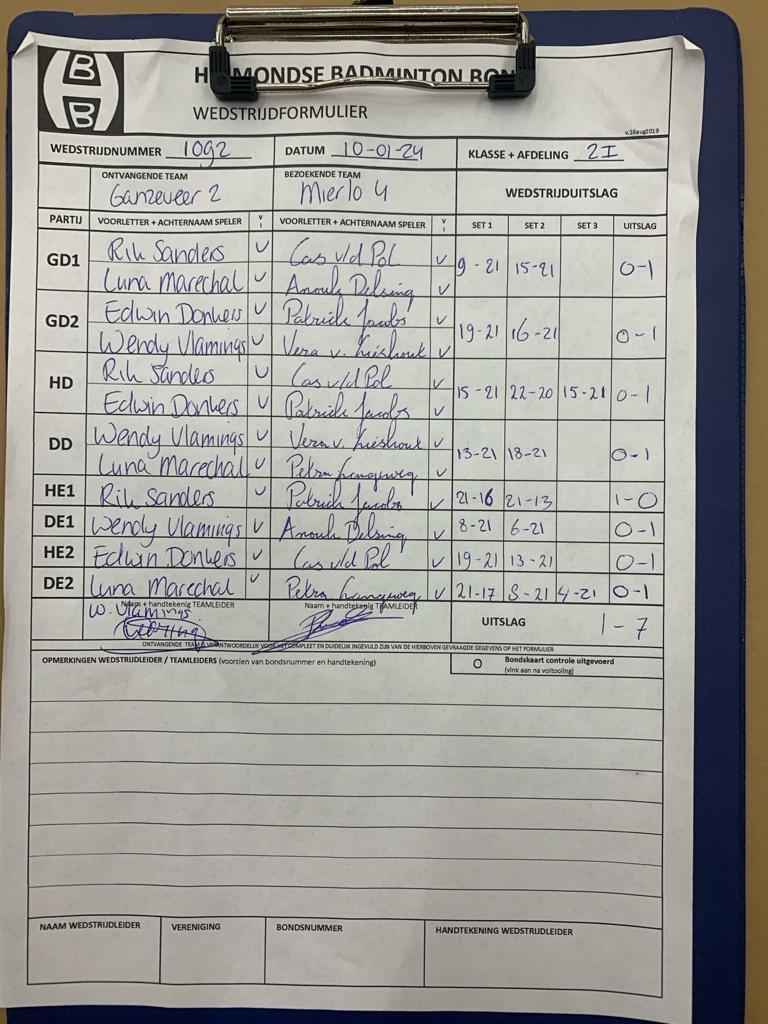 B
H
B
HELMONDSE BADMINTON BON
WEDSTRIJDFORMULIER
v.16aug2019
WEDSTRIJDNUMMER 1092 DATUM 10-01-24 KLASSE + AFDELING 2I
ONTVANGENDE TEAM BEZOEKENDE TEAM WEDSTRIJDUITSLAG
Ganzeveer 2 Mierlo 4
PARTIJ VOORLETTER + ACHTERNAAM SPELER V I VOORLETTER + ACHTERNAAM SPELER V I SET 1 SET 2 SET 3 UITSLAG
GD1 Rik Sanders V Cas v/d Pol V 9-21 15-21 0-1
Luna Marechal V Anouk Delsing V
GD2 Edwin Donkers V Patrick Jacobs V 19-21 16-21 0-1
Wendy Vlamings V Vera v. Lieshout V
HD Rik Sanders V Cas v/d Pol V 15-21 22-20 15-21 0-1
Edwin Donkers V Patrick Jacobs V
DD Wendy Vlamings V Vera v. Lieshout V 13-21 18-21 0-1
Luna Marechal V Petra Langeweg V
HE1 Rik Sanders V Patrick Jacobs V 21-16 21-13 1-0
DE1 Wendy Vlamings V Anouk Delsing V 8-21 6-21 0-1
HE2 Edwin Donkers V Cas v/d Pol V 19-21 13-21 0-1
DE2 Luna Marechal V Petra Langeweg V 21-17 8-21 4-21 0-1
Naam + handtekenig TEAMLEIDER Naam + handtekenig TEAMLEIDER UITSLAG 1-7
W. Vlamings
ONTVANGENDE TEAM IS VERANTWOORDELIJK VOOR HET COMPLEET EN DUIDELIJK INGEVULD ZIJN VAN DE HIERBOVEN GEVRAAGDE GEGEVENS OP HET FORMULIER
OPMERKINGEN WEDSTRIJDLEIDER / TEAMLEIDERS (voorzien van bondsnummer en handtekening) O Bondskaart controle uitgevoerd
(vink aan na voltooiing)
NAAM WEDSTRIJDLEIDER VERENIGING BONDSNUMMER HANDTEKENING WEDSTRIJDLEIDER